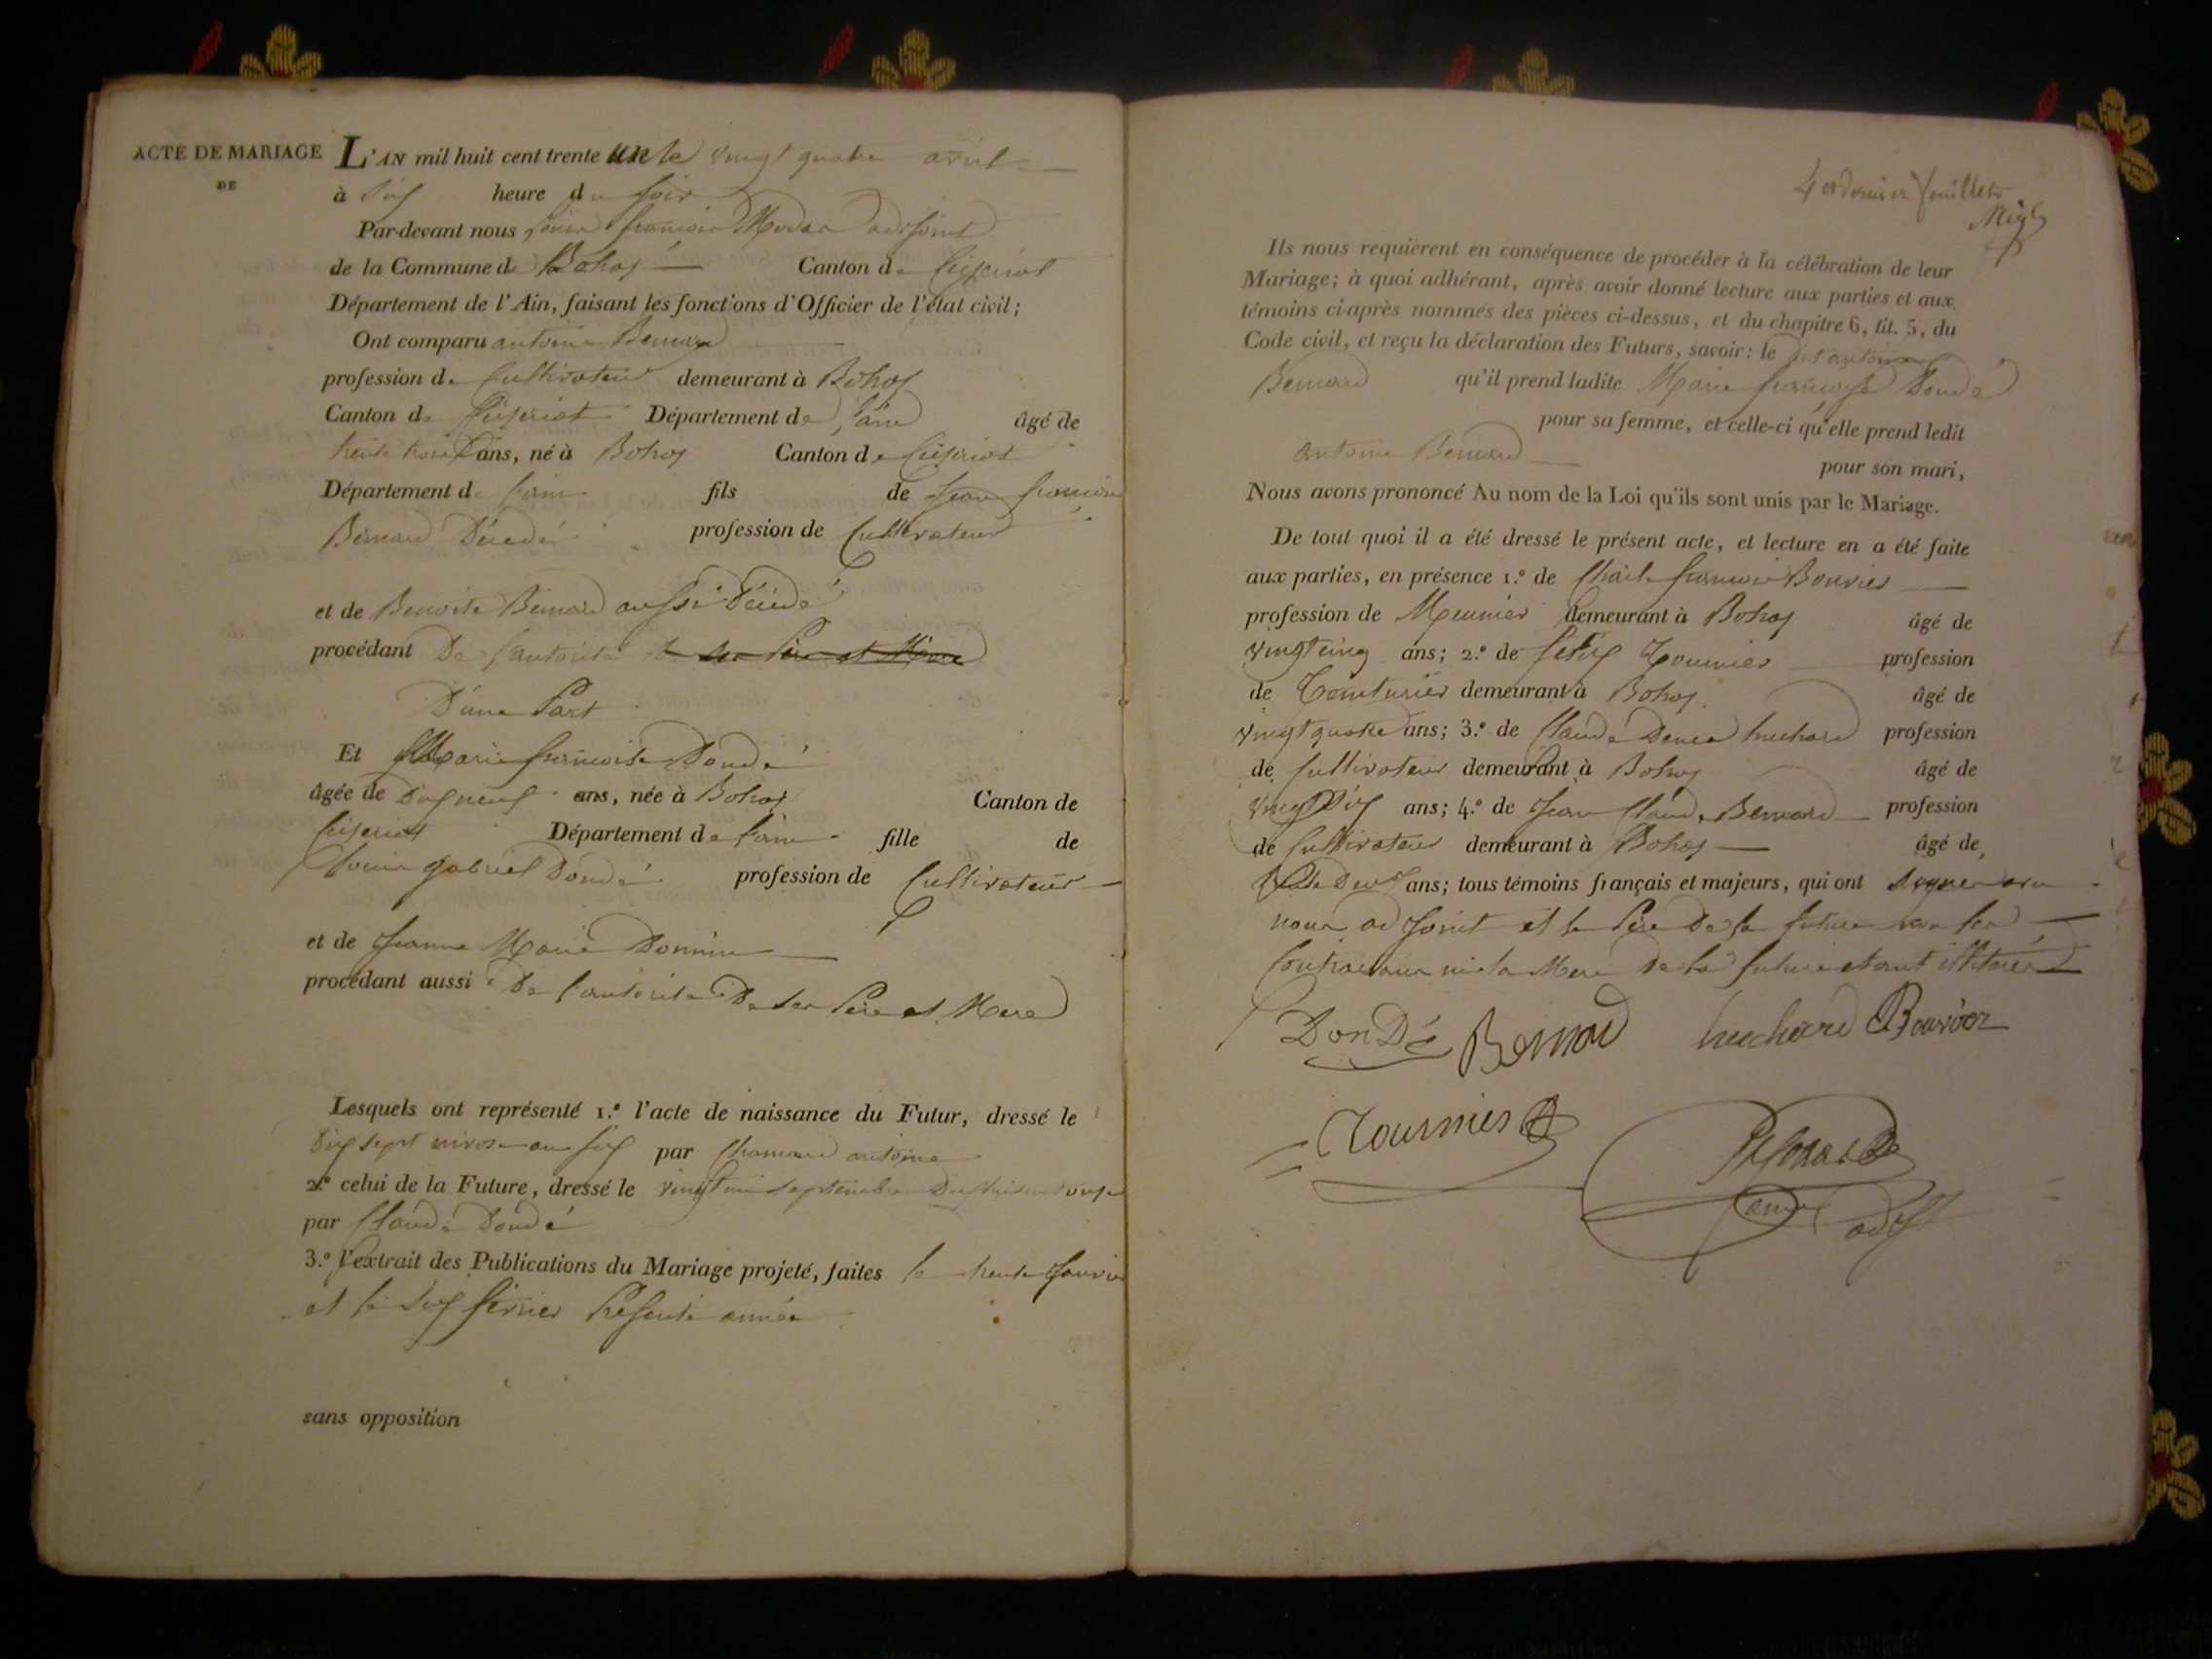 ACTE DE MARIAGE
DE
L'AN mil huit cent trente un le vingt quatre avril
à Six heure du soir
Par-devant nous françois adjoint
de la Commune de Bohas Canton de Ceyseriat
Département de l'Ain, faisant les fonctions d'Officier de l'état civil;
Ont comparu antoine Bernard
profession de Cultivateur demeurant à Bohas
Canton de Ceyseriat Département de l'ain âgé de
trente trois ans, né à Bohas Canton de Ceyseriat
Département de l'ain fils de Jean françois
Bernard Décédé profession de Cultivateur
et de Benoite Bernard aussi Décédé
procédant De l'autorité de ses Père et Mère
D'une Part
Et Marie françoise Dondé
âgée de Dix neuf ans, née à Bohas Canton de
Ceyseriat Département de l'ain fille de
Louis gabriel Dondé profession de Cultivateur
et de Jeanne Marie
procédant aussi De l'autorité De ses Père et Mere
Lesquels ont représenté 1.º l'acte de naissance du Futur, dressé le
Dix sept nivose an six par Chamard antoine
2.º celui de la Future, dressé le vingt un septembre Dix huit cent onze
par Claude Dondé
3.º l'extrait des Publications du Mariage projeté, faites le trente Janvier
et le Six février Presente année
sans opposition
4 et dernier feuillets
Ils nous requièrent en conséquence de procéder à la célébration de leur
Mariage; à quoi adhérant, après avoir donné lecture aux parties et aux
témoins ci-après nommés des pièces ci-dessus, et du chapitre 6, tit. 5, du
Code civil, et reçu la déclaration des Futurs, savoir: le dit antoine
Bernard qu'il prend ladite Marie françoise Dondé
pour sa femme, et celle-ci qu'elle prend ledit
antoine Bernard pour son mari,
Nous avons prononcé Au nom de la Loi qu'ils sont unis par le Mariage.
De tout quoi il a été dressé le présent acte, et lecture en a été faite
aux parties, en présence 1.º de Charle françois Bouvier
profession de Meunier demeurant à Bohas âgé de
vingt cinq ans; 2.º de Tournier profession
de Teinturier demeurant à Bohas âgé de
vingt quatre ans; 3.º de Claude huchard profession
de Cultivateur demeurant à Bohas âgé de
ans; 4.º de Jean Claude Bernard profession
de Cultivateur demeurant à Bohas âgé de
ans; tous témoins français et majeurs, qui ont signer avec
nous adjoint et le Père De la future non les
Contractans ni la Mere De la future etant illiterés
DonDé Bernard huchard Bouvier
Tournier
adj